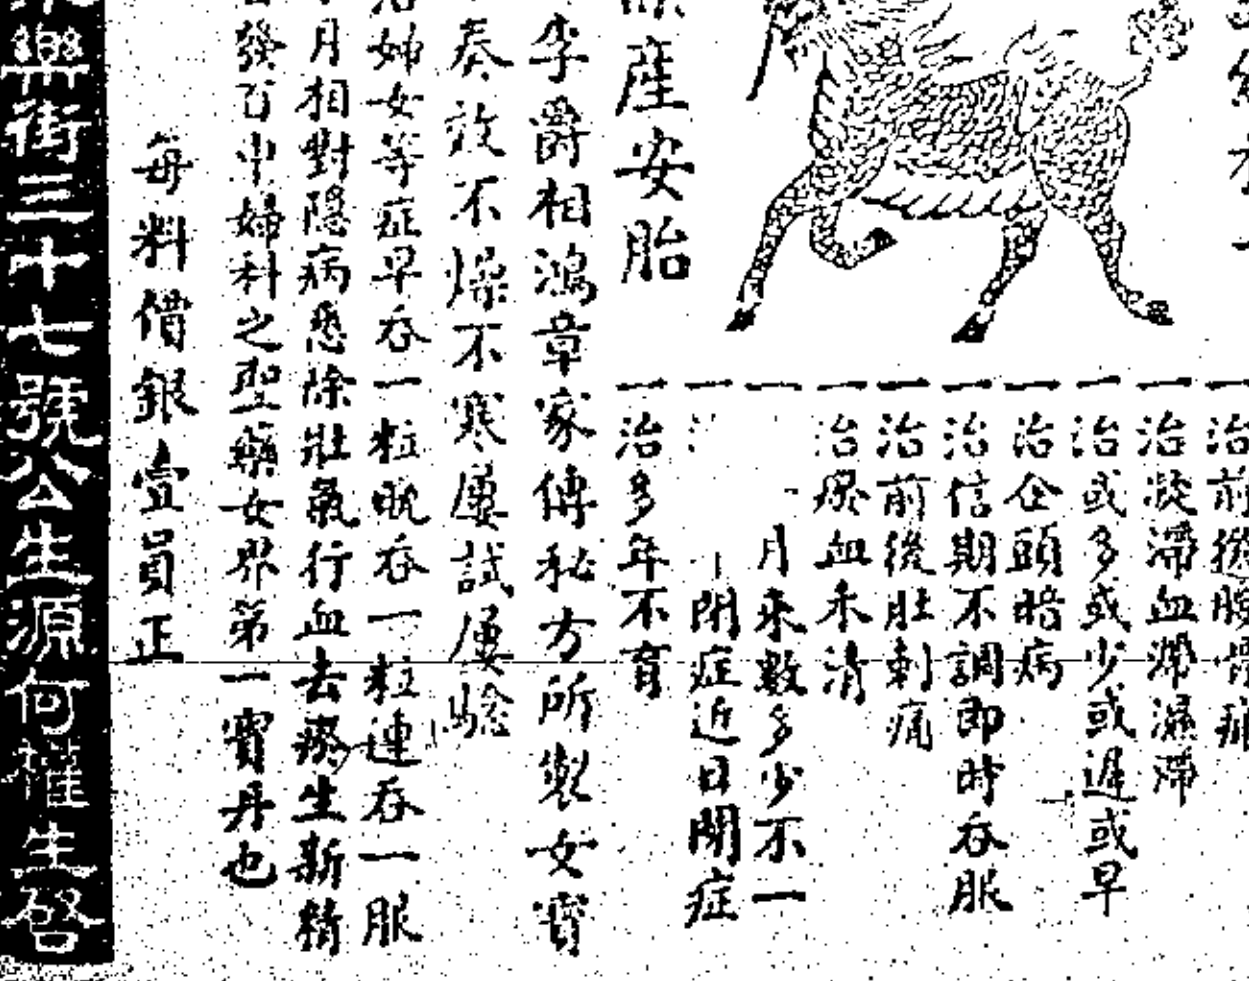 一治前後腹骨痛
一治淡滯血滯濕滯
一治或多或少或遲或早
一治企頭暗病
一治信期不調即時吞服
一治前後肚刺痛
一治瘀血未清
一 月來數多少不一
一 閉症近日閉症
一治多年不育
產安胎
李爵相鴻章家傳秘方所製女寶
奏效不燥不寒屢試屢驗
婦女等症早吞一粒晚吞一粒連吞一服
月相對隱病悉除壯氣行血去瘀生新精
發百中婦科之聖藥女界第一寶丹也
每料價銀壹員正
樂街三十七號公生源何權生啓